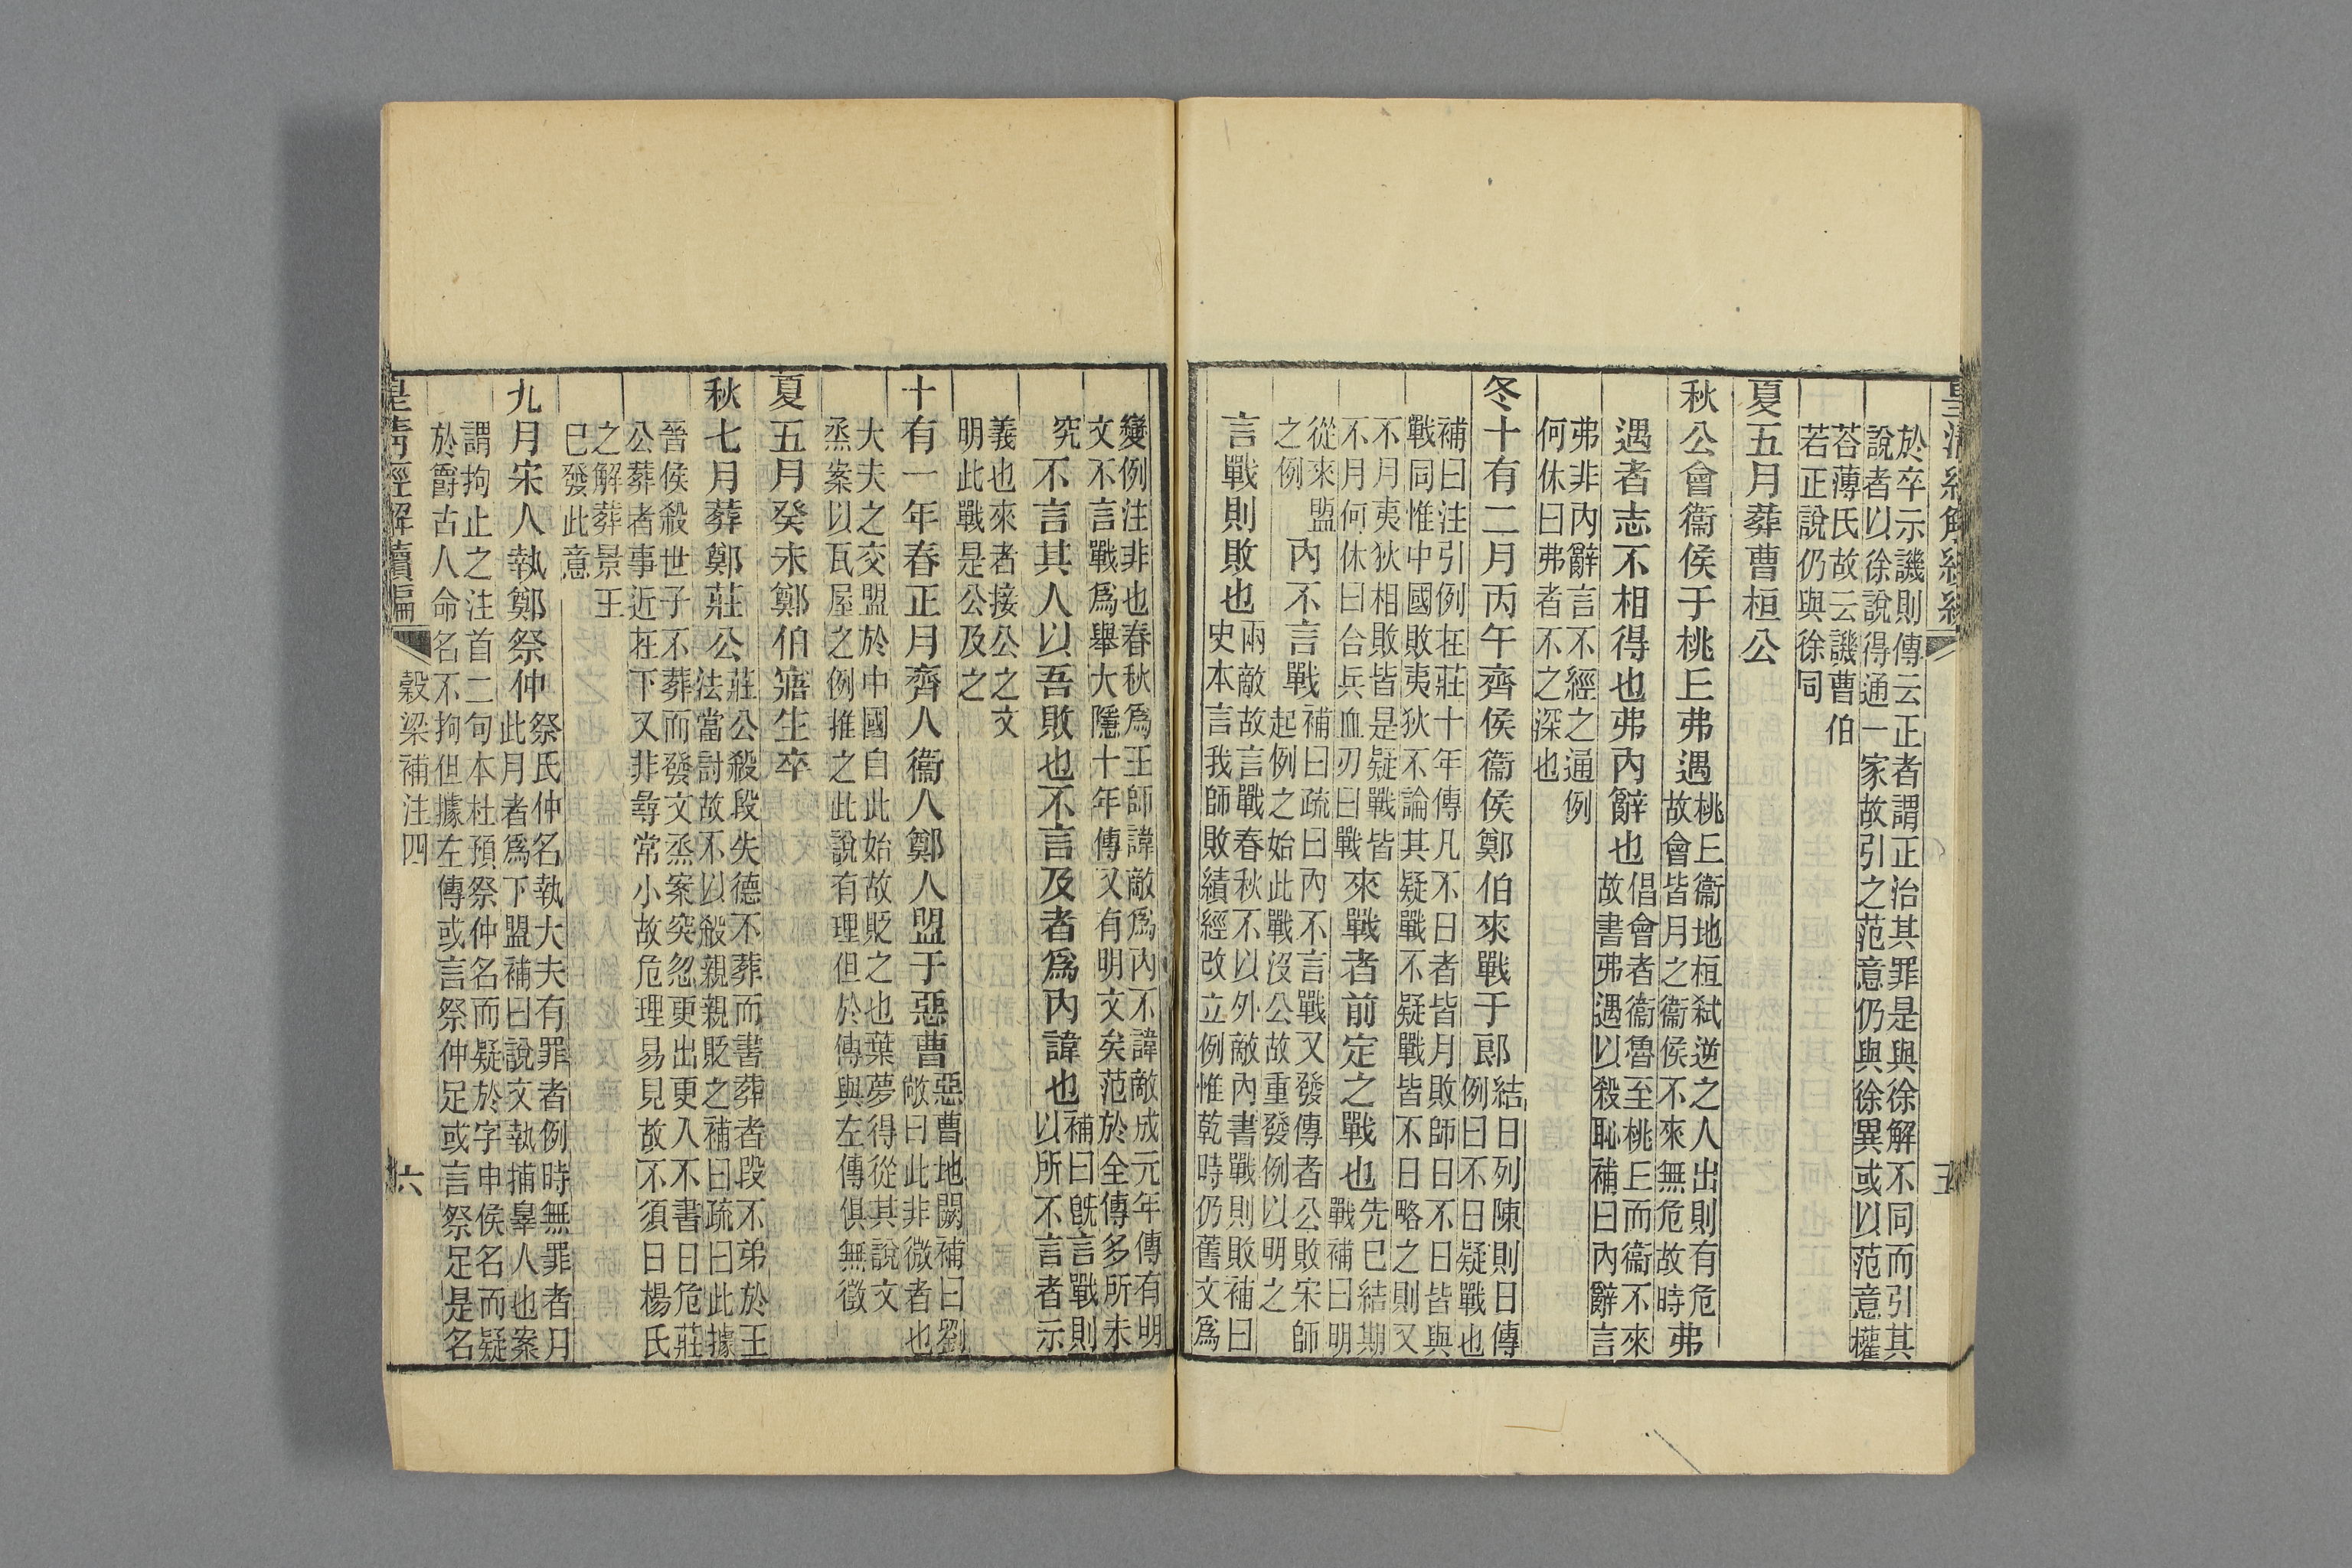 皇清經解續編
五
於卒示譏則傳云正者謂正治其罪是與徐解不同而引其
說者以徐說得通一家故引之范意仍與徐異或以范意權
苔薄氏故云譏曹伯
若正說仍與徐同
夏五月葬曹桓公
秋公會衞侯于桃丘弗遇
桃丘衞地桓弑逆之人出則有危
故會皆月之衞侯不來無危故時
弗
遇者志不相得也弗內辭也
倡會者衞魯至桃丘而衞不來
故書弗遇以殺恥補曰內辭言
弗非內辭言不經之通例
何休曰弗者不之深也
冬十有二月丙午齊侯衞侯鄭伯來戰于郎
結日列陳則日傳
例曰不日疑戰也
補曰注引例在莊十年傳凡不日者皆月敗師日不日皆與
戰同惟中國敗夷狄不論其疑戰不疑戰皆不日略之則又
不月夷狄相敗皆是疑戰皆
不月何休曰合兵血刃曰戰
來戰者前定之戰也
先已結期
戰補曰明
從來盟
之例
內不言戰
補曰疏曰內不言戰又發傳者公敗宋師
起例之始此戰沒公故重發例以明之
言戰則敗也
兩敵故言戰春秋不以外敵內書戰則敗補曰
史本言我師敗績經改立例惟乾時仍舊文爲
變例注非也春秋爲王師諱敵爲內不諱敵成元年傳有明
文不言戰爲舉大隱十年傳又有明文矣范於全傳多所未
究
不言其人以吾敗也不言及者爲內諱也
補曰旣言戰則
以所不言者示
義也來者接公之文
明此戰是公及之
十有一年春正月齊人衞人鄭人盟于惡曹
惡曹地闕補曰劉
敞曰此非微者也
大夫之交盟於中國自此始故貶之也葉夢得從其說文
烝案以瓦屋之例推之此說有理但於傳與左傳俱無徵
夏五月癸未鄭伯寤生卒
秋七月葬鄭莊公
莊公殺段失德不葬而書葬者段不弟於王
法當討故不以殺親親貶之補曰疏曰此據
晉侯殺世子不葬而發文烝案突忽更出更入不書日危莊
公葬者事近在下又非尋常小故危理易見故不須日楊氏
之解葬景王
已發此意
九月宋人執鄭祭仲
祭氏仲名執大夫有罪者例時無罪者月
此月者爲下盟補曰說文執捕辠人也案
謂拘止之注首二句本杜預祭仲名而疑於字申侯名而疑
於爵古人命名不拘但據左傳或言祭仲足或言祭足是名
皇清經解續編
穀梁補注四
六